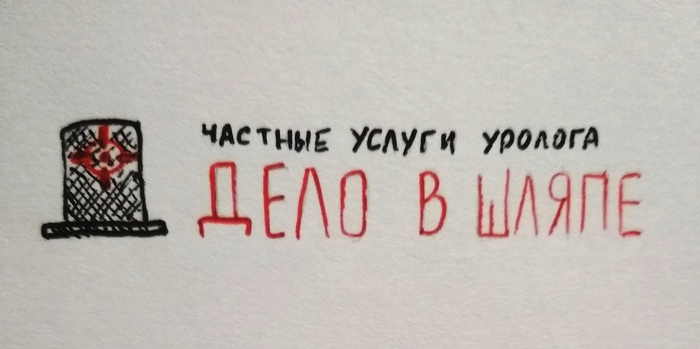 ЧАСТНЫЕ УСЛУГИ УРОЛОГА
ДЕЛО В ШЛЯПЕ